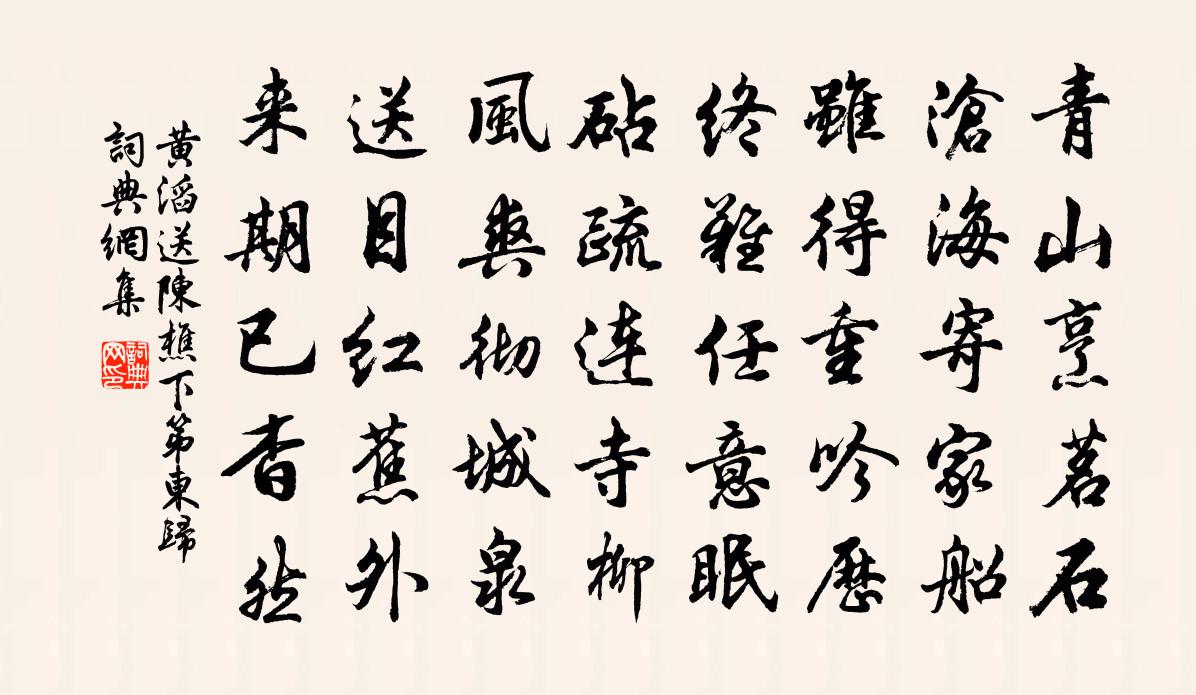 青山烹茗石
滄海寄家船
雖得重吟歷
終難任意眠
砧疏連寺柳
風爽徹城泉
送目紅蕉外
来期已杳然
黃滔送陳樵下第東歸
詞典網集
詞典网印